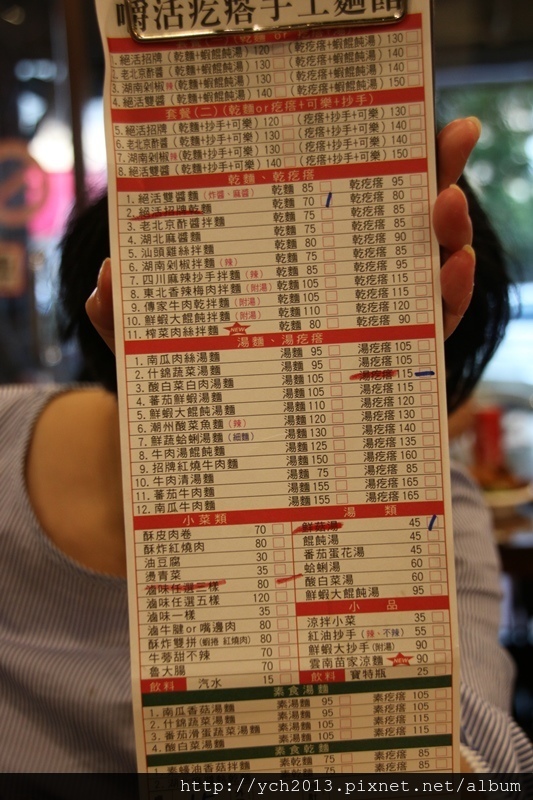 嚼活疙瘩手工麵館
1. 絕活招牌(乾麵+蝦餛飩湯) 120 (乾疙瘩+蝦餛飩湯) 130
2. 老北京酢醬(乾麵+蝦餛飩湯) 130 (乾疙瘩+蝦餛飩湯) 140
3. 湖南剁椒辣(乾麵+蝦餛飩湯) 130 (乾疙瘩+蝦餛飩湯) 140
4. 絕活雙醬(乾麵+蝦餛飩湯) 140 (乾疙瘩+蝦餛飩湯) 150
套餐(二)(乾麵or疙瘩+可樂+抄手)
5. 絕活招牌(乾麵+抄手+可樂) 120 (疙瘩+抄手+可樂) 130
6. 老北京酢醬(乾麵+抄手+可樂) 130 (疙瘩+抄手+可樂) 140
7. 湖南剁椒辣(乾麵+抄手+可樂) 130 (疙瘩+抄手+可樂) 140
8. 絕活雙醬(乾麵+抄手+可樂) 140 (疙瘩+抄手+可樂) 150
乾麵、乾疙瘩
1. 絕活雙醬麵(炸醬、麻醬) 乾麵 85 乾疙瘩 95
2. 絕活招牌乾麵 乾麵 70 乾疙瘩 80
3. 老北京酢醬拌麵 乾麵 75 乾疙瘩 85
4. 湖北麻醬麵 乾麵 75 乾疙瘩 85
5. 汕頭雞絲拌麵 乾麵 80 乾疙瘩 90
6. 湖南剁椒拌麵(辣) 乾麵 75 乾疙瘩 85
7. 四川麻辣抄手拌麵(辣) 乾麵 85 乾疙瘩 95
8. 東北香辣梅肉拌麵(附湯) 乾麵 105 乾疙瘩 115
9. 傳家牛肉乾拌麵(附湯) 乾麵 105 乾疙瘩 115
10. 鮮蝦大餛飩拌麵(附湯) 乾麵 110 乾疙瘩 120
11. 榨菜肉絲拌麵 NEW 乾麵 80 乾疙瘩 90
湯麵、湯疙瘩
1. 南瓜肉絲湯麵 湯麵 95 湯疙瘩 105
2. 什錦蔬菜湯麵 湯麵 95 湯疙瘩 105
3. 酸白菜白肉湯麵 湯麵 105 湯疙瘩 115
4. 蕃茄鮮蝦麵 湯麵 105 湯疙瘩 115
5. 鮮蝦大餛飩湯麵 湯麵 110 湯疙瘩 120
6. 潮州酸菜魚麵(辣) 湯麵 120 湯疙瘩 130
7. 鮮蔬蛤蜊湯麵(細麵) 湯麵 130 湯疙瘩 140
8. 牛肉湯餛飩麵 湯麵 125 湯疙瘩 135
9. 招牌紅燒牛肉麵 湯麵 150 湯疙瘩 160
10. 牛肉清湯麵 湯麵 75 湯疙瘩 85
11. 蕃茄牛肉麵 湯麵 155 湯疙瘩 165
12. 南瓜牛肉麵 湯麵 155 湯疙瘩 165
小菜類
酥皮肉卷 70
酥炸紅燒肉 80
油豆腐 30
燙青菜 35
滷味任選三樣 80
滷味任選五樣 120
滷味一樣 35
滷牛腱or嘴邊肉 80
酥炸雙拼(蝦捲 紅燒肉) 80
牛蒡甜不辣 70
魯大腸 70
飲料 汽水 15
湯類
鮮菇湯 45
餛飩湯 45
蕃茄蛋花湯 45
蛤蜊湯 60
酸白菜湯 60
鮮蝦大餛飩湯 95
小品
涼拌小菜 35
紅油抄手(辣、不辣) 55
鮮蝦大抄手(附湯) 90
雲南苗家涼麵 NEW 90
飲料 寶特瓶 25
素食湯麵
1. 南瓜香菇湯麵 素湯麵 95 素疙瘩 105
2. 什錦蔬菜湯麵 素湯麵 95 素疙瘩 105
3. 蕃茄滑蛋蔬菜麵 素湯麵 105 素疙瘩 115
4. 酸白菜湯麵 素湯麵 95 素疙瘩 105
素食乾麵
素乾麵 75 素疙瘩 85
http://ych2013.pixnet.net/album